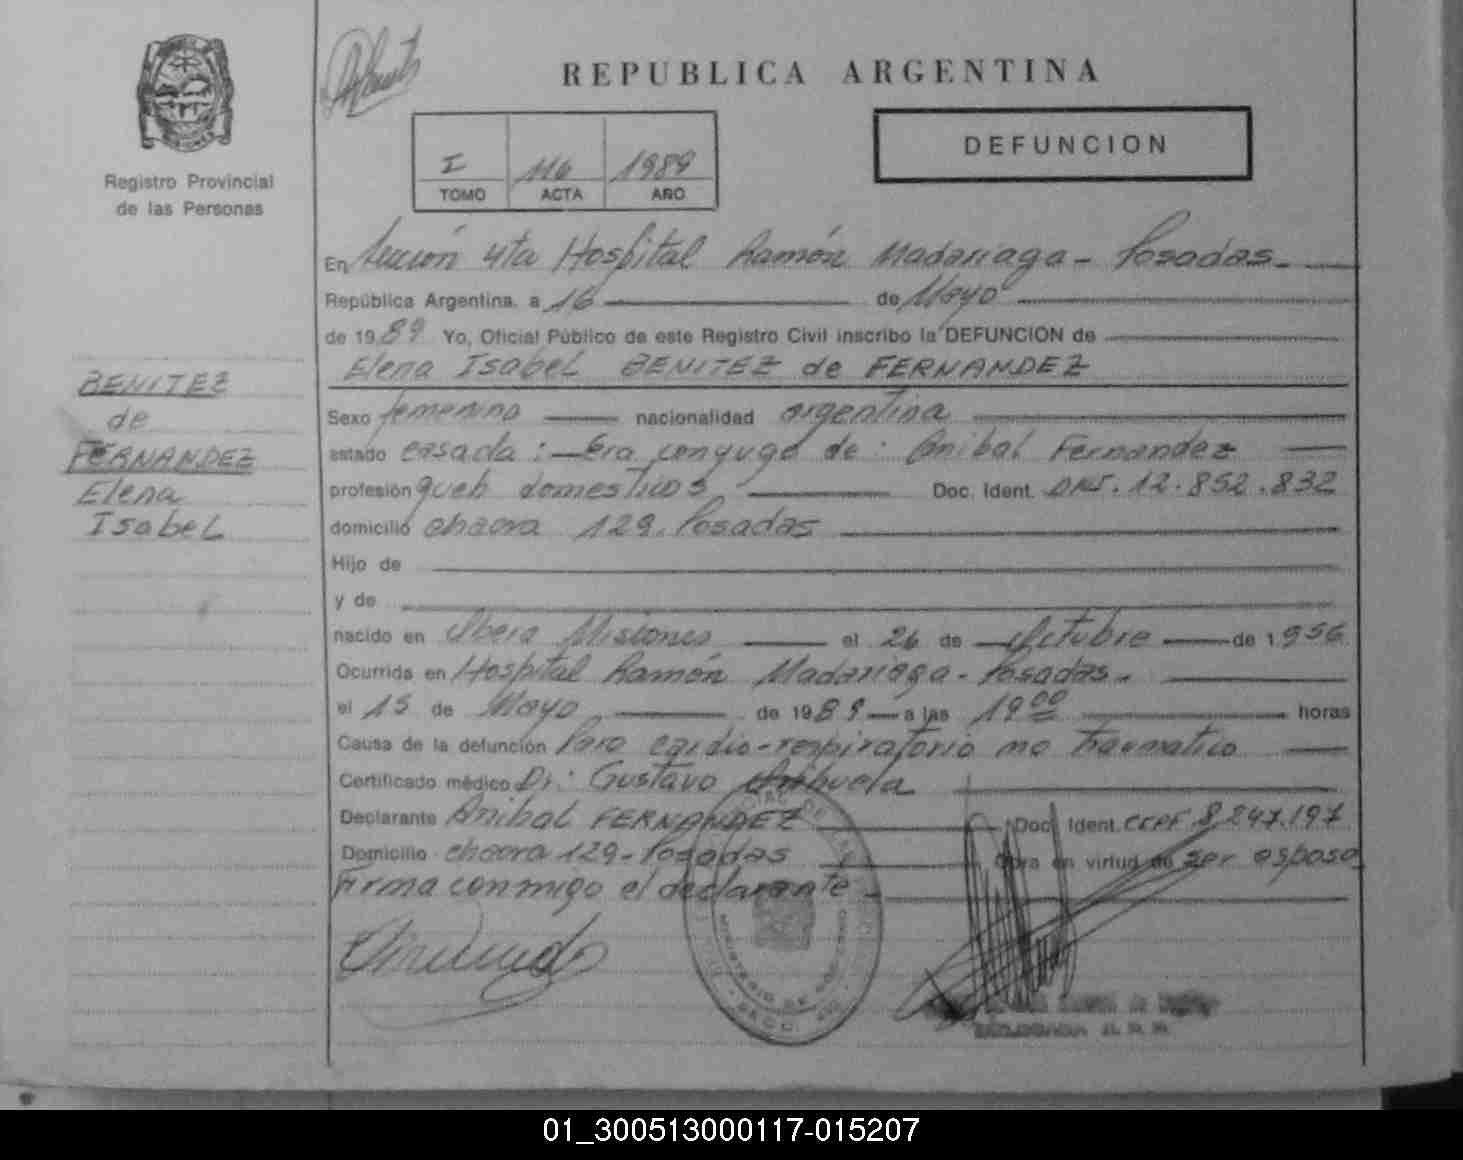 REPUBLICA ARGENTINA
Registro Provincial
de las Personas
I 116 1989
TOMO ACTA AÑO
DEFUNCION
En Sección 4ta Hospital Ramón Madariaga - Posadas -
República Argentina. a 16 de Mayo
de 1989 Yo, Oficial Público de este Registro Civil inscribo la DEFUNCION de
Elena Isabel BENITEZ de FERNANDEZ
BENITEZ
de
FERNANDEZ
Elena
Isabel
Sexo femenino nacionalidad argentina
estado casada: - Era conyuge de: Anibal Fernandez
profesión queh domesticos Doc. Ident. DNI. 12.852.832
domicilio chacra 129. Posadas
Hijo de
y de
nacido en Obera Misiones el 26 de Octubre de 1956
Ocurrida en Hospital Ramón Madariaga - Posadas -
el 15 de Mayo de 1989 a las 19 00 horas
Causa de la defunción Paro cardio-respiratorio no traumatico
Certificado médico Dr: Gustavo
Declarante Anibal FERNANDEZ Doc. Ident. 8.247.197
Domicilio chacra 129 - Posadas Obra en virtud de ser esposo
Firma conmigo el declarante -
01_300513000117-015207